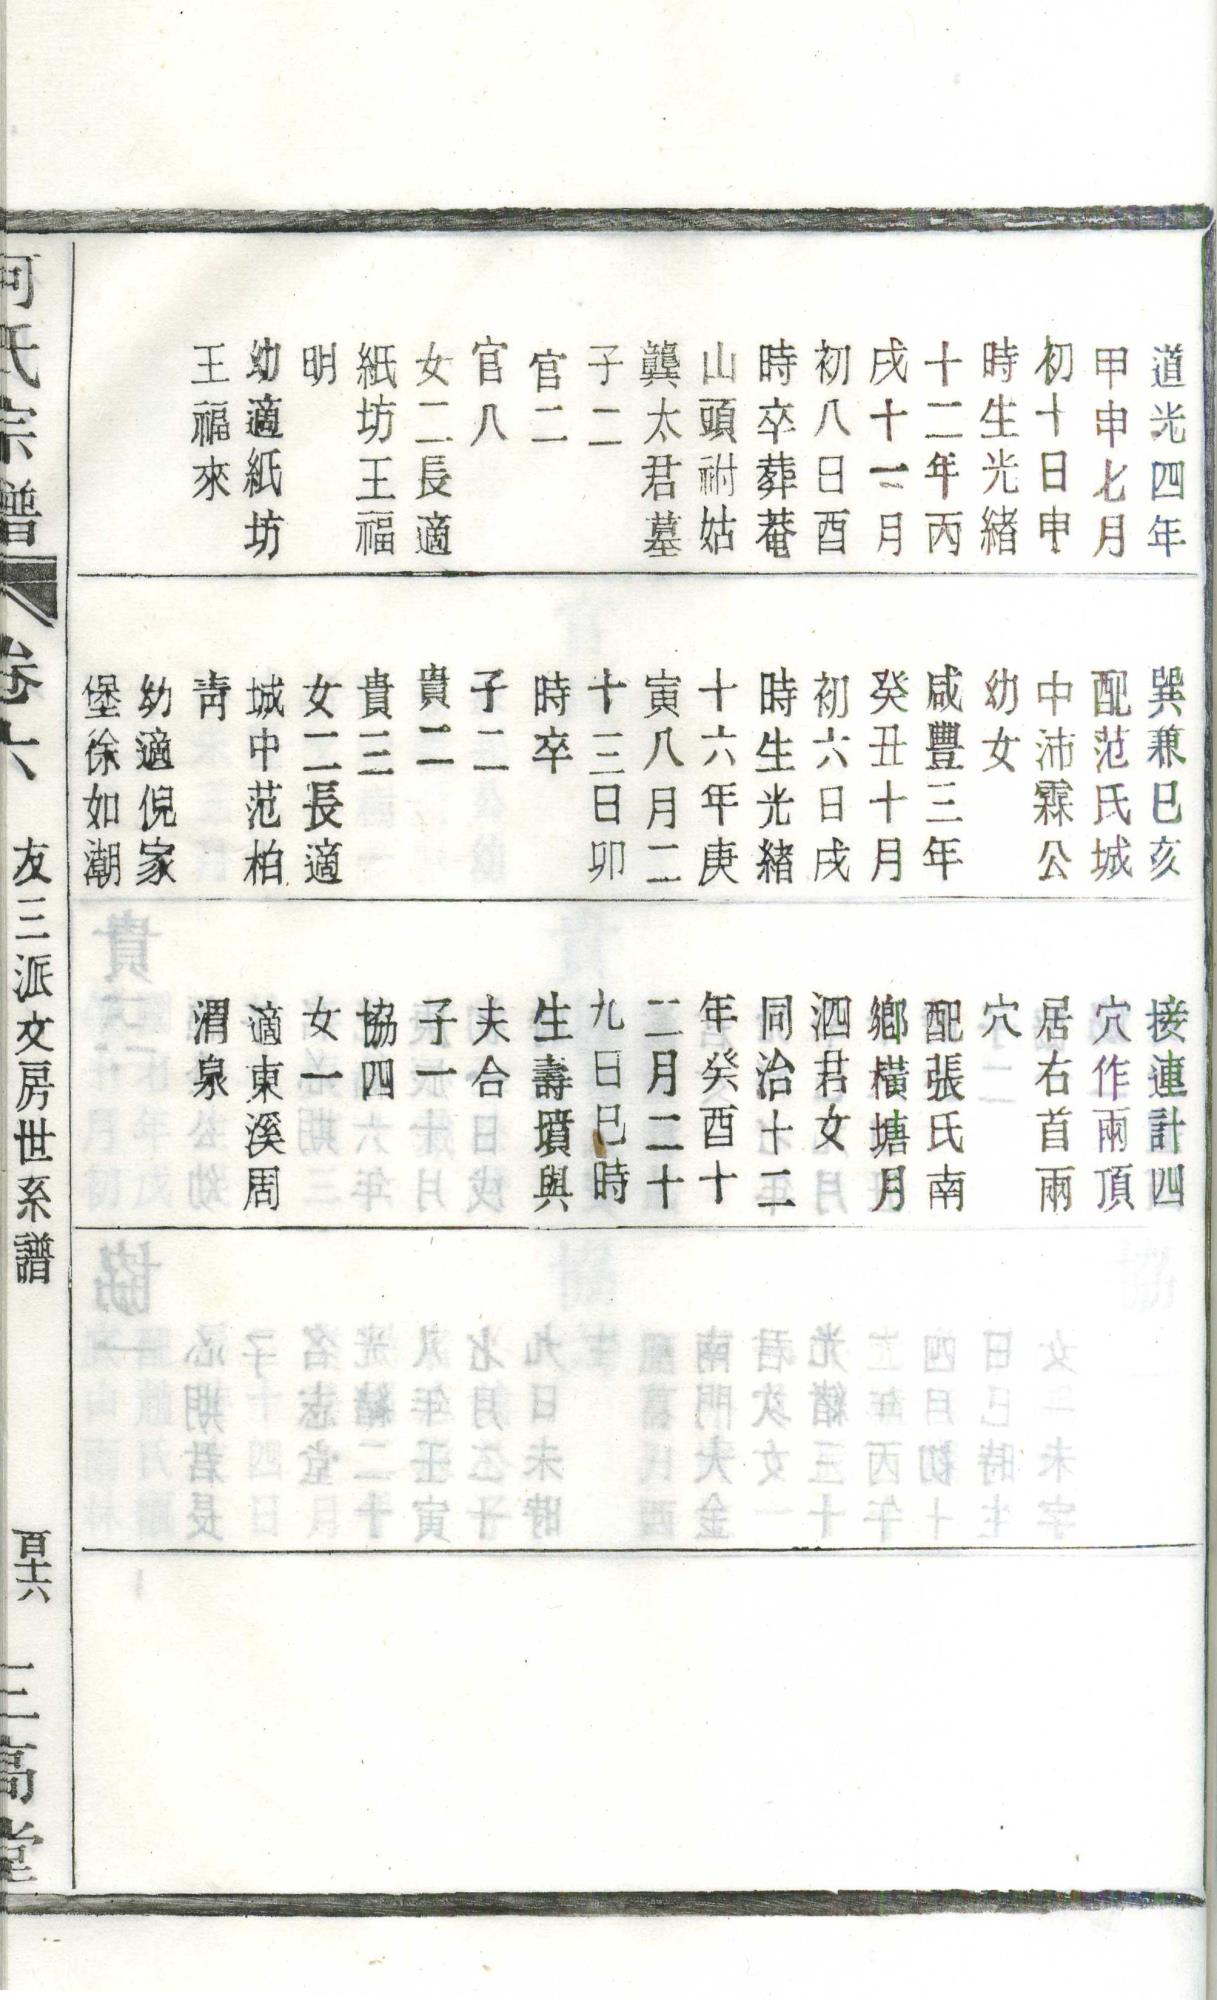 道光四年
甲申七月
初十日申
時生光緒
十二年丙
戌十一月
初八日酉
時卒葬菴
山頭祔姑
龔太君墓
子二
官二
官八
女二長適
紙坊王福
明
幼適紙坊
王福來
巽兼巳亥
配范氏城
中沛霖公
幼女
咸豐三年
癸丑十月
初六日戌
時生光緒
十六年庚
寅八月二
十三日卯
時卒
子二
貴二
貴三
女二長適
城中范柏
靑
幼適倪家
堡徐如潮
接連計四
穴作兩頂
居右首兩
穴
配張氏南
鄉橫塘月
泗君女
同治十二
年癸酉十
二月二十
九日巳時
生壽墳與
夫合
子一
協四
女一
適東溪周
渭泉
何氏宗譜
卷六
友三派文房世系譜
百十六
三高堂